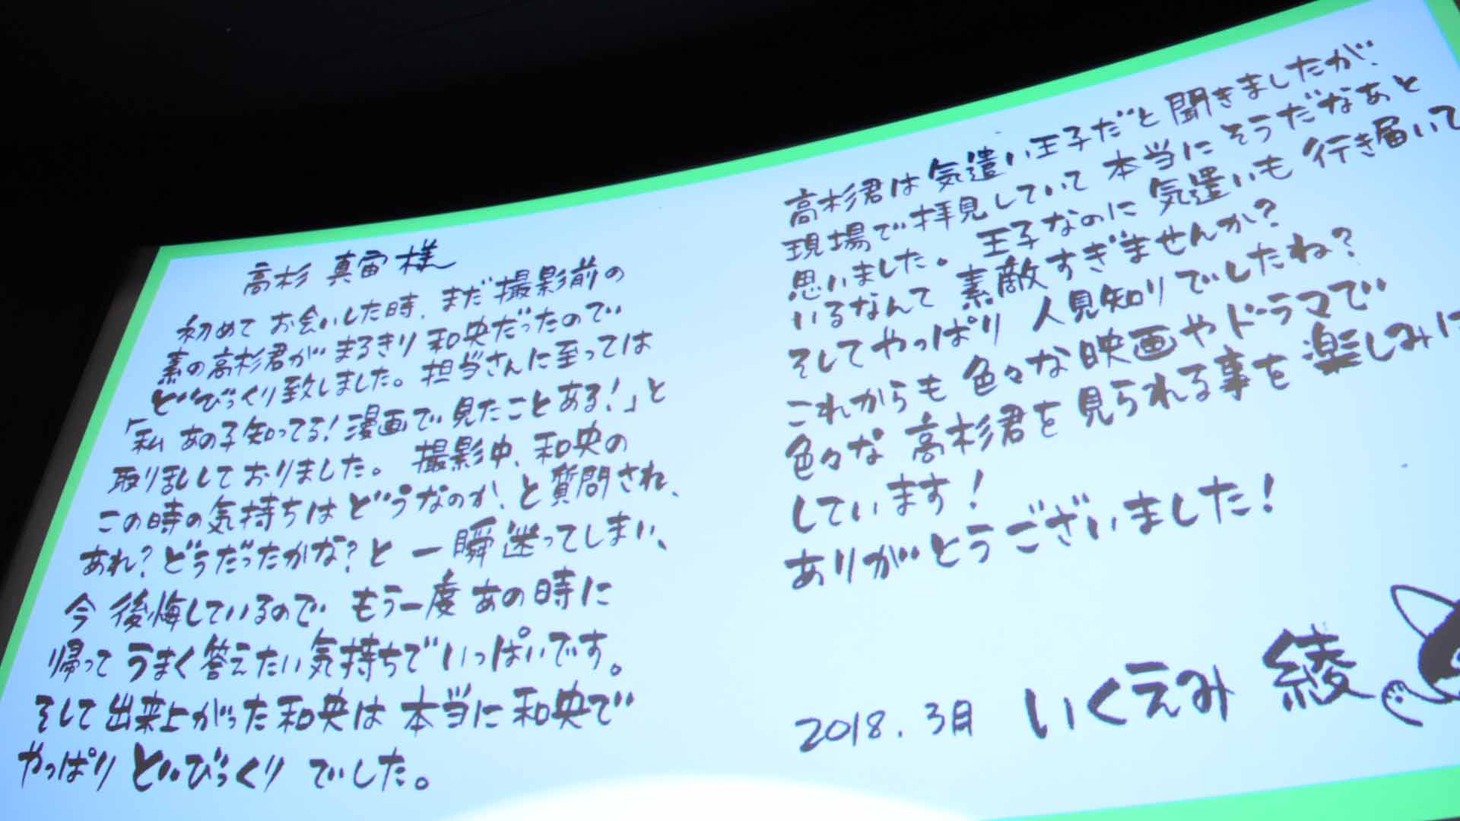 高杉 真宙 様
初めて お会いした時、まだ撮影前の
素の高杉君が まるきり 和央だったので
どびっくり致しました。担当さんに至っては
「私 あの子知ってる！漫画で 見たことある！」と
取り乱しておりました。 撮影中、和央の
この時の気持ちは どうなのか、と 質問され、
あれ？どうだったかな？と 一瞬迷ってしまい、
今 後悔しているので もう一度 あの時に
帰って うまく答えたい気持ちでいっぱいです。
そして 出来上がった和央は 本当に和央で
やっぱり どびっくり でした。
高杉君は 気遣い王子だと 聞きましたが、
現場で拝見していて 本当に そうだなあと
思いました。 王子なのに 気遣いも 行き届いて
いるなんて 素敵すぎませんか？
そしてやっぱり 人見知りでしたね？
これからも 色々な映画やドラマで
色々な 高杉君を 見られる事を 楽しみに
しています！
ありがとうございました！
2018．3月 いくえみ 綾